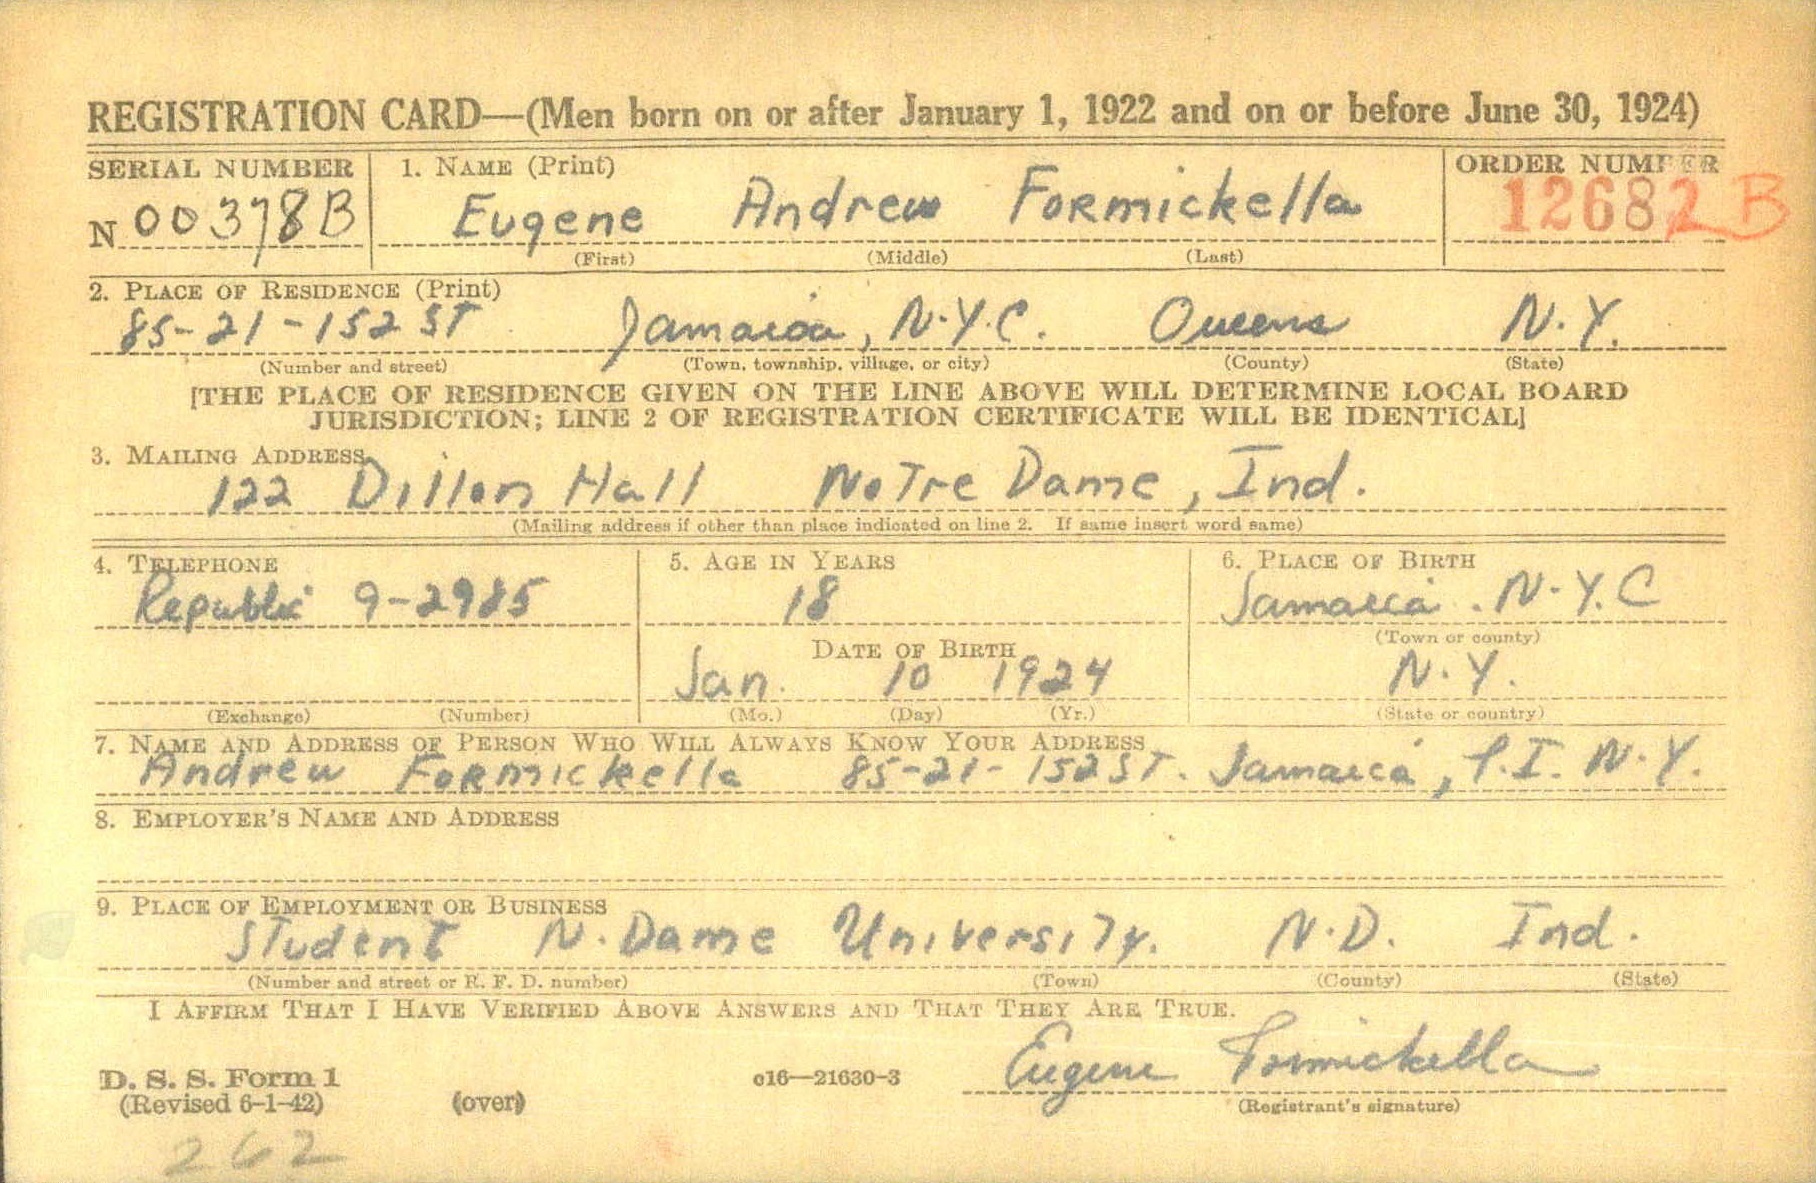 REGISTRATION CARD—(Men born on or after January 1, 1922 and on or before June 30, 1924)
SERIAL NUMBER 1. NAME (Print) ORDER NUMBER
N 00378B Eugene Andrew Formickella 12682B
(First) (Middle) (Last)
2. PLACE OF RESIDENCE (Print)
85-21-152 ST Jamaica, N.Y.C. Queens N.Y.
(Number and street) (Town, township, village, or city) (County) (State)
[THE PLACE OF RESIDENCE GIVEN ON THE LINE ABOVE WILL DETERMINE LOCAL BOARD
JURISDICTION; LINE 2 OF REGISTRATION CERTIFICATE WILL BE IDENTICAL]
3. MAILING ADDRESS
122 Dillon Hall Notre Dame, Ind.
(Mailing address if other than place indicated on line 2. If same insert word same)
4. TELEPHONE 5. AGE IN YEARS 6. PLACE OF BIRTH
Republic 9-2985 18 Jamaica. N.Y.C
(Town or county)
DATE OF BIRTH
Jan. 10 1924 N.Y.
(Exchange) (Number) (Mo.) (Day) (Yr.) (State or country)
7. NAME AND ADDRESS OF PERSON WHO WILL ALWAYS KNOW YOUR ADDRESS
Andrew Formickella 85-21-152 ST. Jamaica, L.I. N.Y.
8. EMPLOYER'S NAME AND ADDRESS
9. PLACE OF EMPLOYMENT OR BUSINESS
Student N. Dame University. N.D. Ind.
(Number and street or R. F. D. number) (Town) (County) (State)
I AFFIRM THAT I HAVE VERIFIED ABOVE ANSWERS AND THAT THEY ARE TRUE.
Eugene Formickella
D. S. S. Form 1
(Revised 6-1-42) (over) c16—21630-3 (Registrant's signature)
262